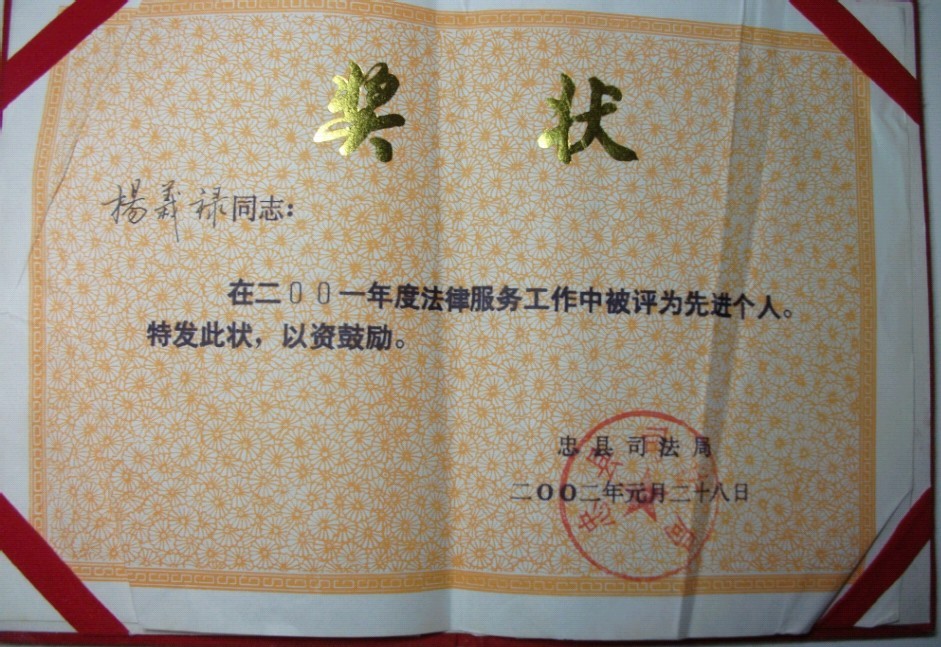 奖状
楊義禄同志：
在二00一年度法律服务工作中被评为先进个人。
特发此状，以资鼓励。
忠县司法局
二OO二年元月二十八日
忠县司 局